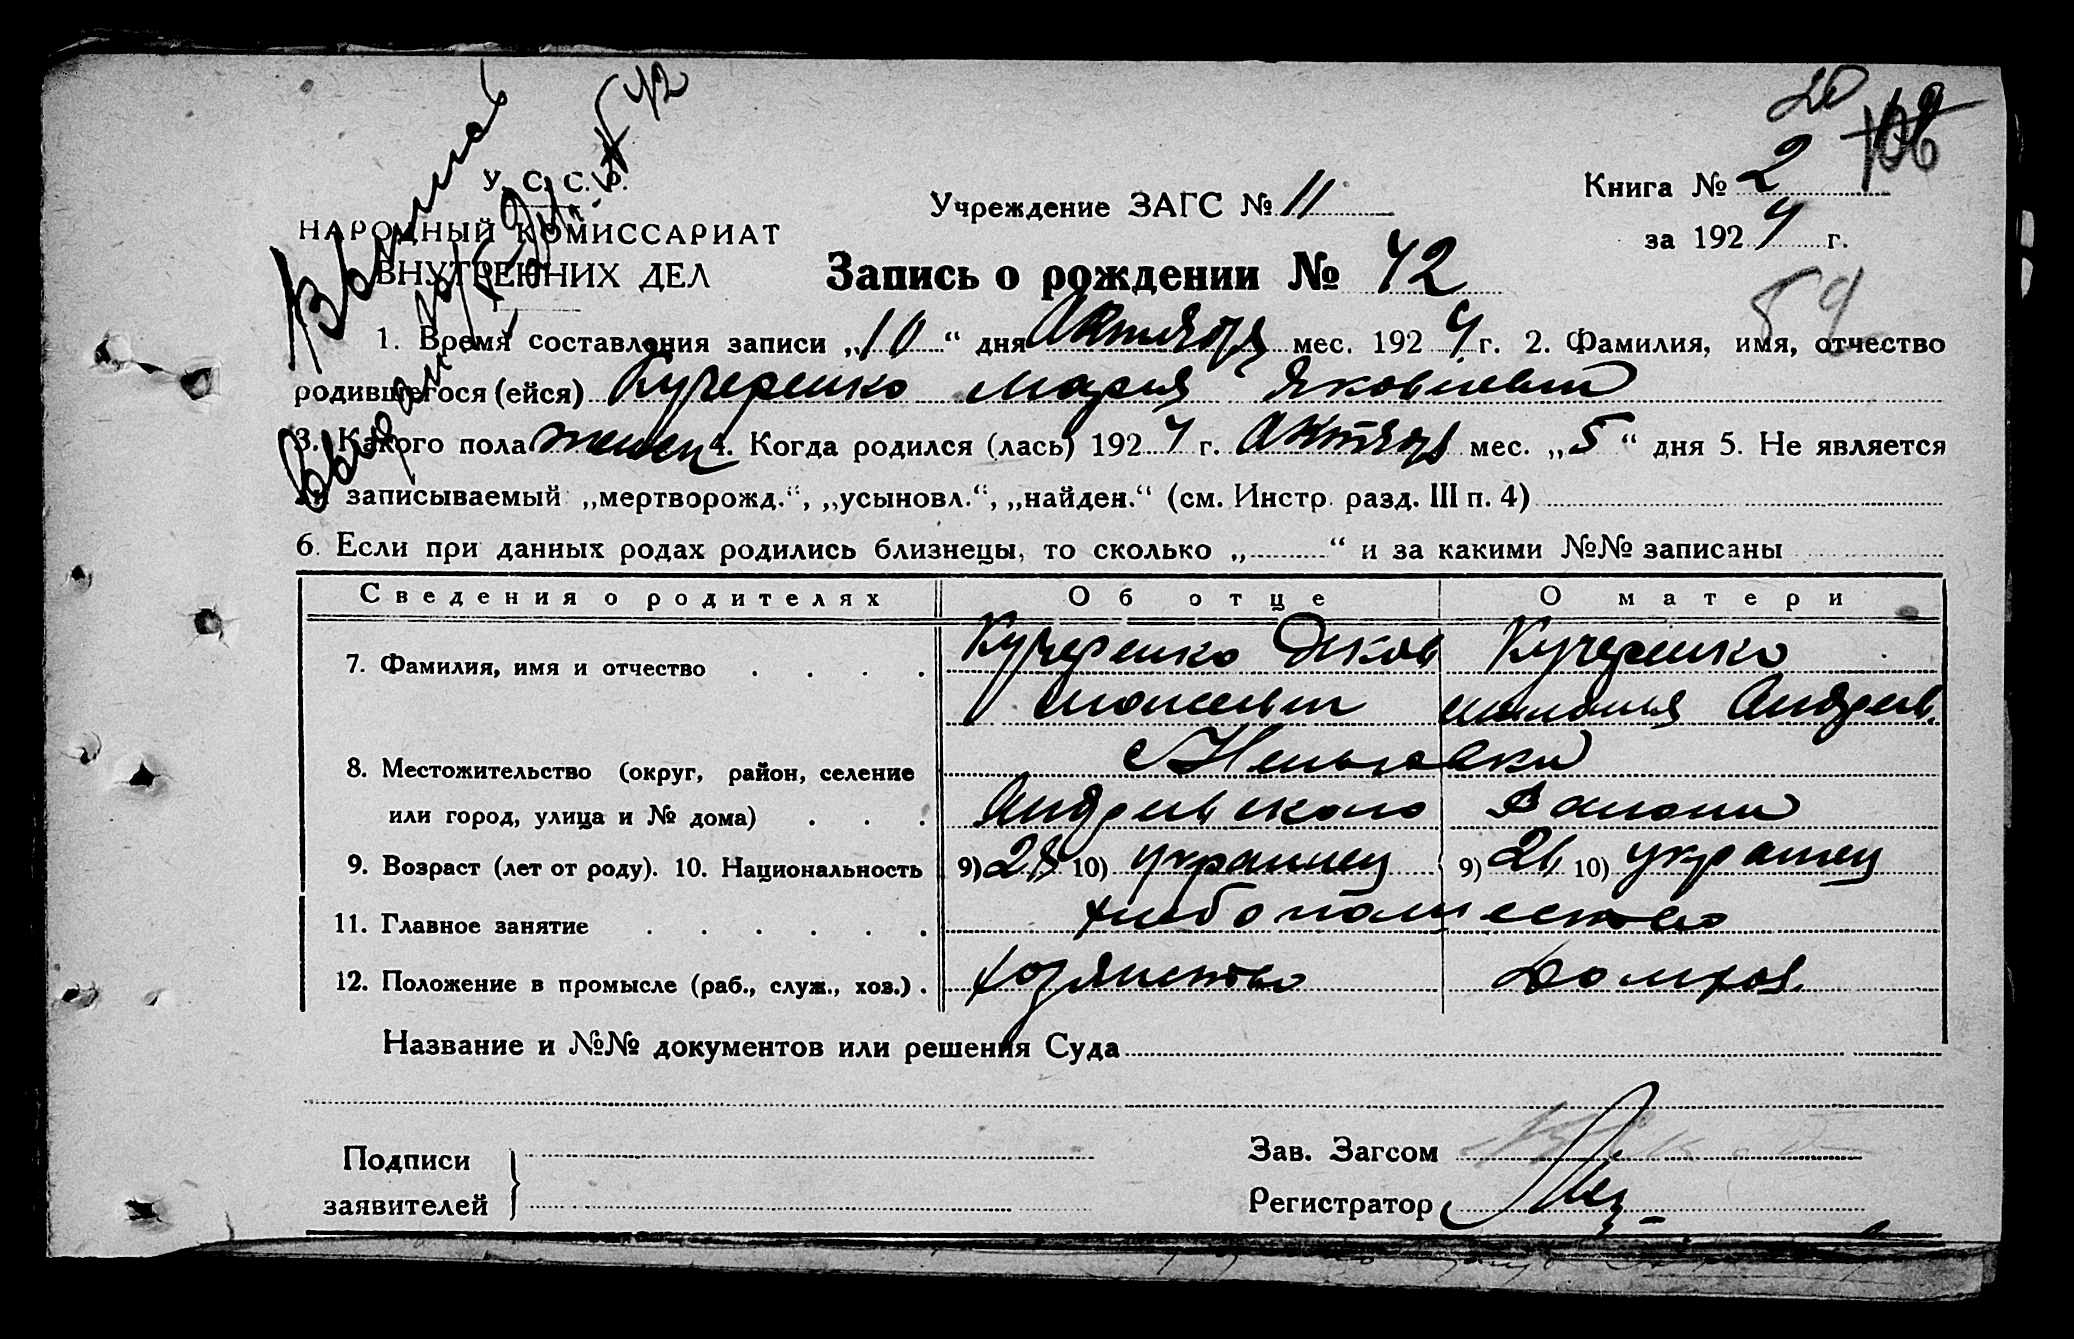 20
106
У. С. С. Р.
НАРОДНЫЙ КОМИССАРИАТ
ВНУТРЕННИХ ДЕЛ
Учреждение ЗАГС № 11
Книга № 2
за 1924 г.
Запись о рождении № 42
59
1. Время составления записи „10“ дня Октября мес. 1924 г. 2. Фамилия, имя, отчество
родившегося (ейся) Кучеренко Мария Яковлевн
3. Какого пола женск 4. Когда родился (лась) 1924 г. Октября мес. „5“ дня 5. Не является
ли записываемый „мертворожд.“, „усыновл.“, „найден.“ (см. Инстр. разд. III п. 4)
6. Если при данных родах родились близнецы, то сколько „ “ и за какими №№ записаны
Сведения о родителях Об отце О матери
7. Фамилия, имя и отчество Кучеренко Яков Кучеренко
Андреев.
8. Местожительство (округ, район, селение
или город, улица и № дома) Андреевского
9. Возраст (лет от роду). 10. Национальность 9) 28 10) украинец 9) 26 10) украинец
11. Главное занятие хлебопашество
12. Положение в промысле (раб., служ., хоз.) хозяйство домхоз.
Название и №№ документов или решения Суда
Подписи
заявителей
Зав. Загсом
Регистратор